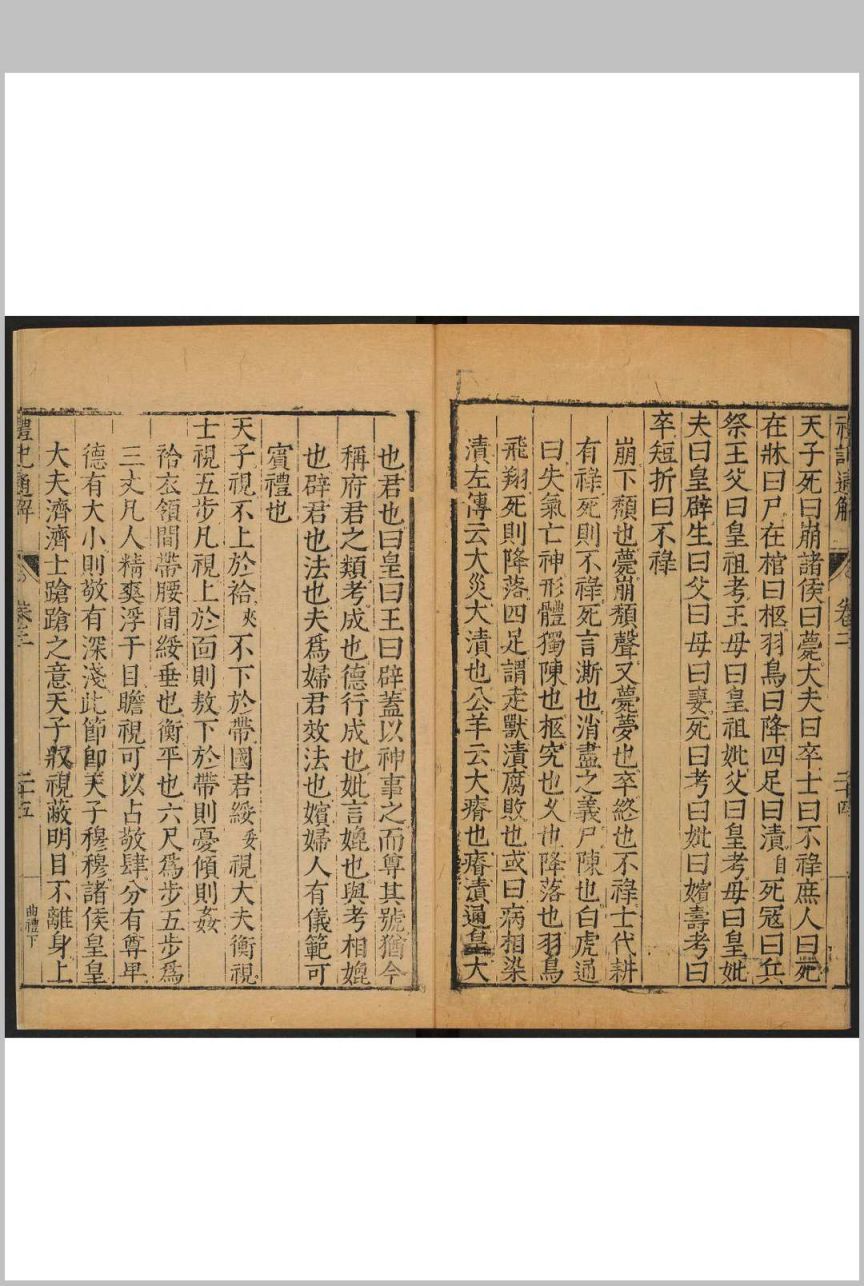 禮記通解 卷二 二十四
天子死曰崩諸侯曰薨大夫曰卒士曰不祿庶人曰死
在牀曰尸在棺曰柩羽鳥曰降四足曰漬自死寇曰兵
祭王父曰皇祖考王母曰皇祖妣父曰皇考母曰皇妣
夫曰皇辟生曰父曰母曰妻死曰考曰妣曰嬪壽考曰
卒短折曰不祿
崩下頹也薨崩頹聲又薨夢也卒終也不祿士代耕
有祿死則不祿死言澌也消盡之義尸陳也白虎通
曰失氣亡神形體獨陳也柩究也久也降落也羽鳥
飛翔死則降落四足謂走獸漬腐敗也或曰病相染
漬左傳云大災大漬也公羊云大瘠也瘠漬通皇大
也君也曰皇曰王曰辟蓋以神事之而尊其號猶今
稱府君之類考成也德行成也妣言媲也與考相媲
也辟君也法也夫爲婦君效法也嬪婦人有儀範可
賓禮也
天子視不上於袷夾不下於帶國君綏妥視大夫衡視
士視五步凡視上於面則敖下於帶則憂傾則姦
袷衣領間帶腰間綏垂也衡平也六尺爲步五步爲
三丈凡人精爽浮于目瞻視可以占敬肆分有尊卑
德有大小則敬有深淺此節卽天子穆穆諸侯皇皇
大夫濟濟士蹌蹌之意天子収視蔽明目不離身上
禮記通解 卷二 二十五 曲禮下